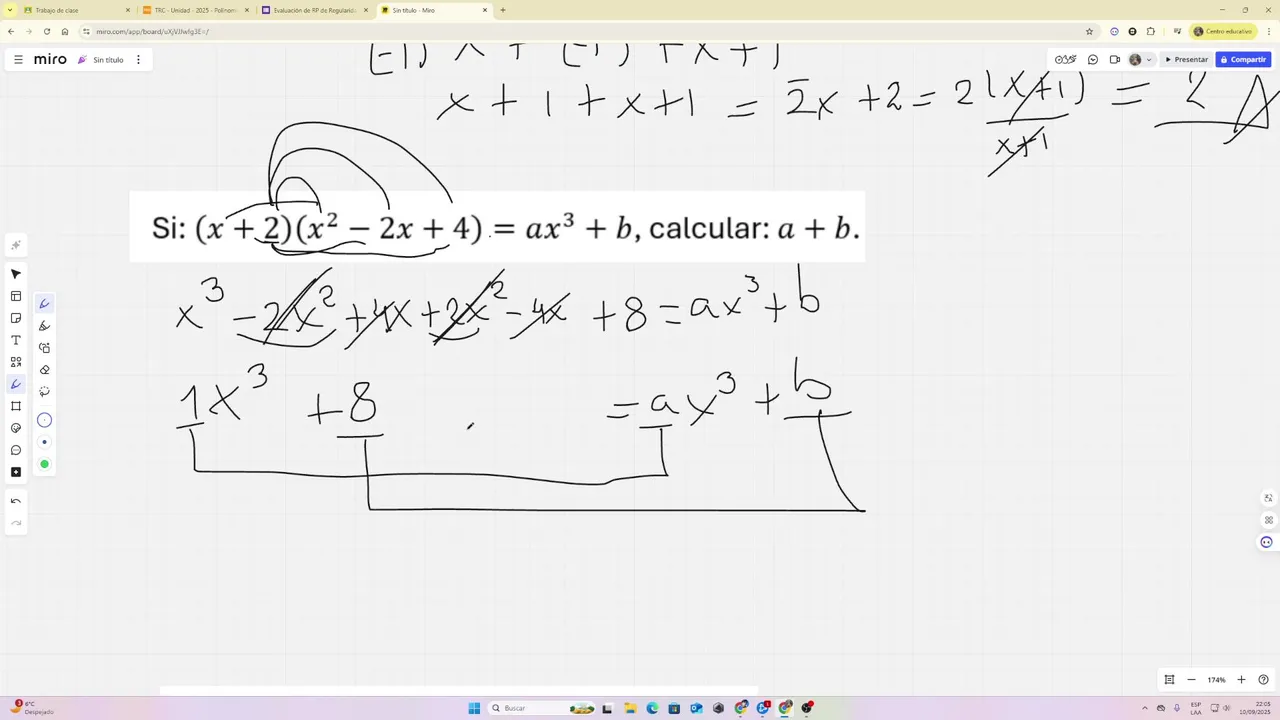 Trabajo de clase
TRC - Unidad - 2025 - Polinomi
Evaluación de RP de Regularidad
Sin título - Miro
miro.com/app/board/uXjVJJwfg3E=/
Centro educativo
miro
Sin título
Presentar
Compartir
(-1) x + (-1) + x + 1
x + 1 + x + 1 = 2x + 2 = 2(x+1) = 2
x+1
Si: (x + 2)(x² − 2x + 4) = ax³ + b, calcular: a + b.
x³ - 2x² + 4x + 2x² - 4x + 8 = ax³ + b
1x³ + 8 = ax³ + b
174%
6°C
Despejado
Buscar
ESP
LAA
22:05
10/09/2025